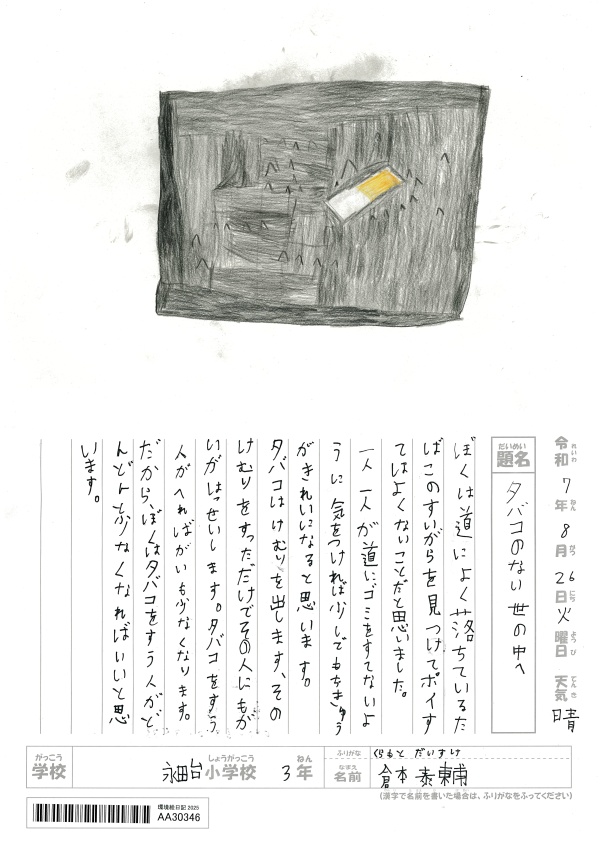 れいわ ねん がつ にち ようび てんき
令和7年8月26日火曜日 天気 晴
だいめい
題名 タバコのない世の中へ
ぼくは道によく落ちているた
ばこのすいがらを見つけてポイす
てはよくないことだと思いました。
一人一人が道にゴミをすてないよ
うに気をつければ少しでもちきゅう
がきれいになると思います。
タバコはけむりを出します、その
けむりをすっただけでその人にもが
いがはっせいします。タバコをすう
人がへればがいも少なくなります。
だから、ぼくはタバコをすう人がど
んどん少なくなればいいと思
います。
がっこう
学校
しょうがっこう ねん
永田台小学校 3年
ふりがな くらもと だいすけ
なまえ
名前 倉本 泰輔
(漢字で名前を書いた場合は、ふりがなをふってください)
環境絵日記2025
AA30346